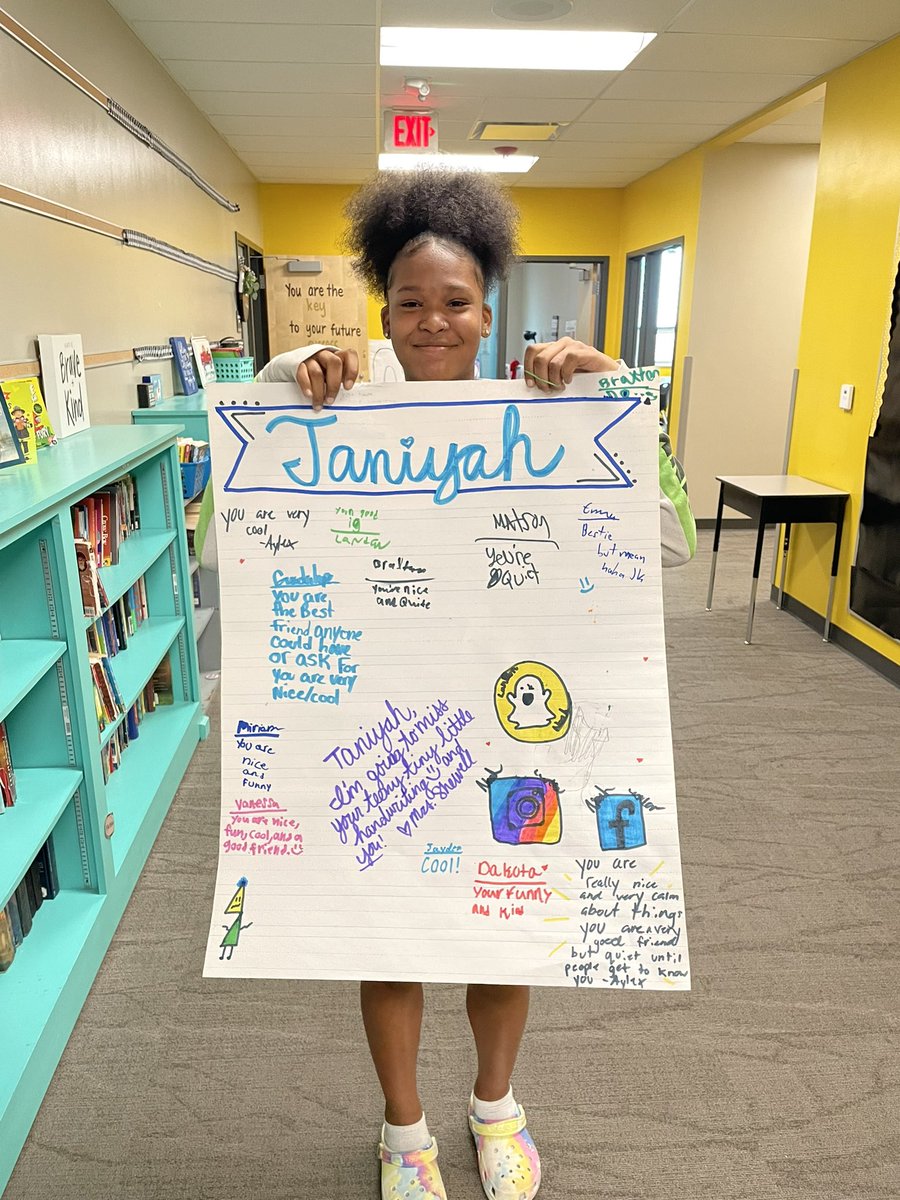 EXIT
You are the
key
to your future
Brave
Kind
Braxton
Janiyah
you are very
cool
-Aylex
Your good
Landen
MATSON
you're
Quit
Emma
Bestie
but mean
haha. Jk
Braxton
you're nice
and Quite
Guadalupe
you are
the Best
friend anyone
could have
or ask for
you are very
Nice/cool
Miriam
You are
nice
and
funny
Janiyah,
I'm going to miss
your teeny tiny little
handwriting and
you! Mrs. Shewell
Vanessa
you are nice,
fun, cool, and a
good friend.
Jayden
COOL!
Dakota
Your funny
and kind
f
you are
really nice
and very calm
about things
you are a very
good friend
but quiet until
people get to know
you - Aylex